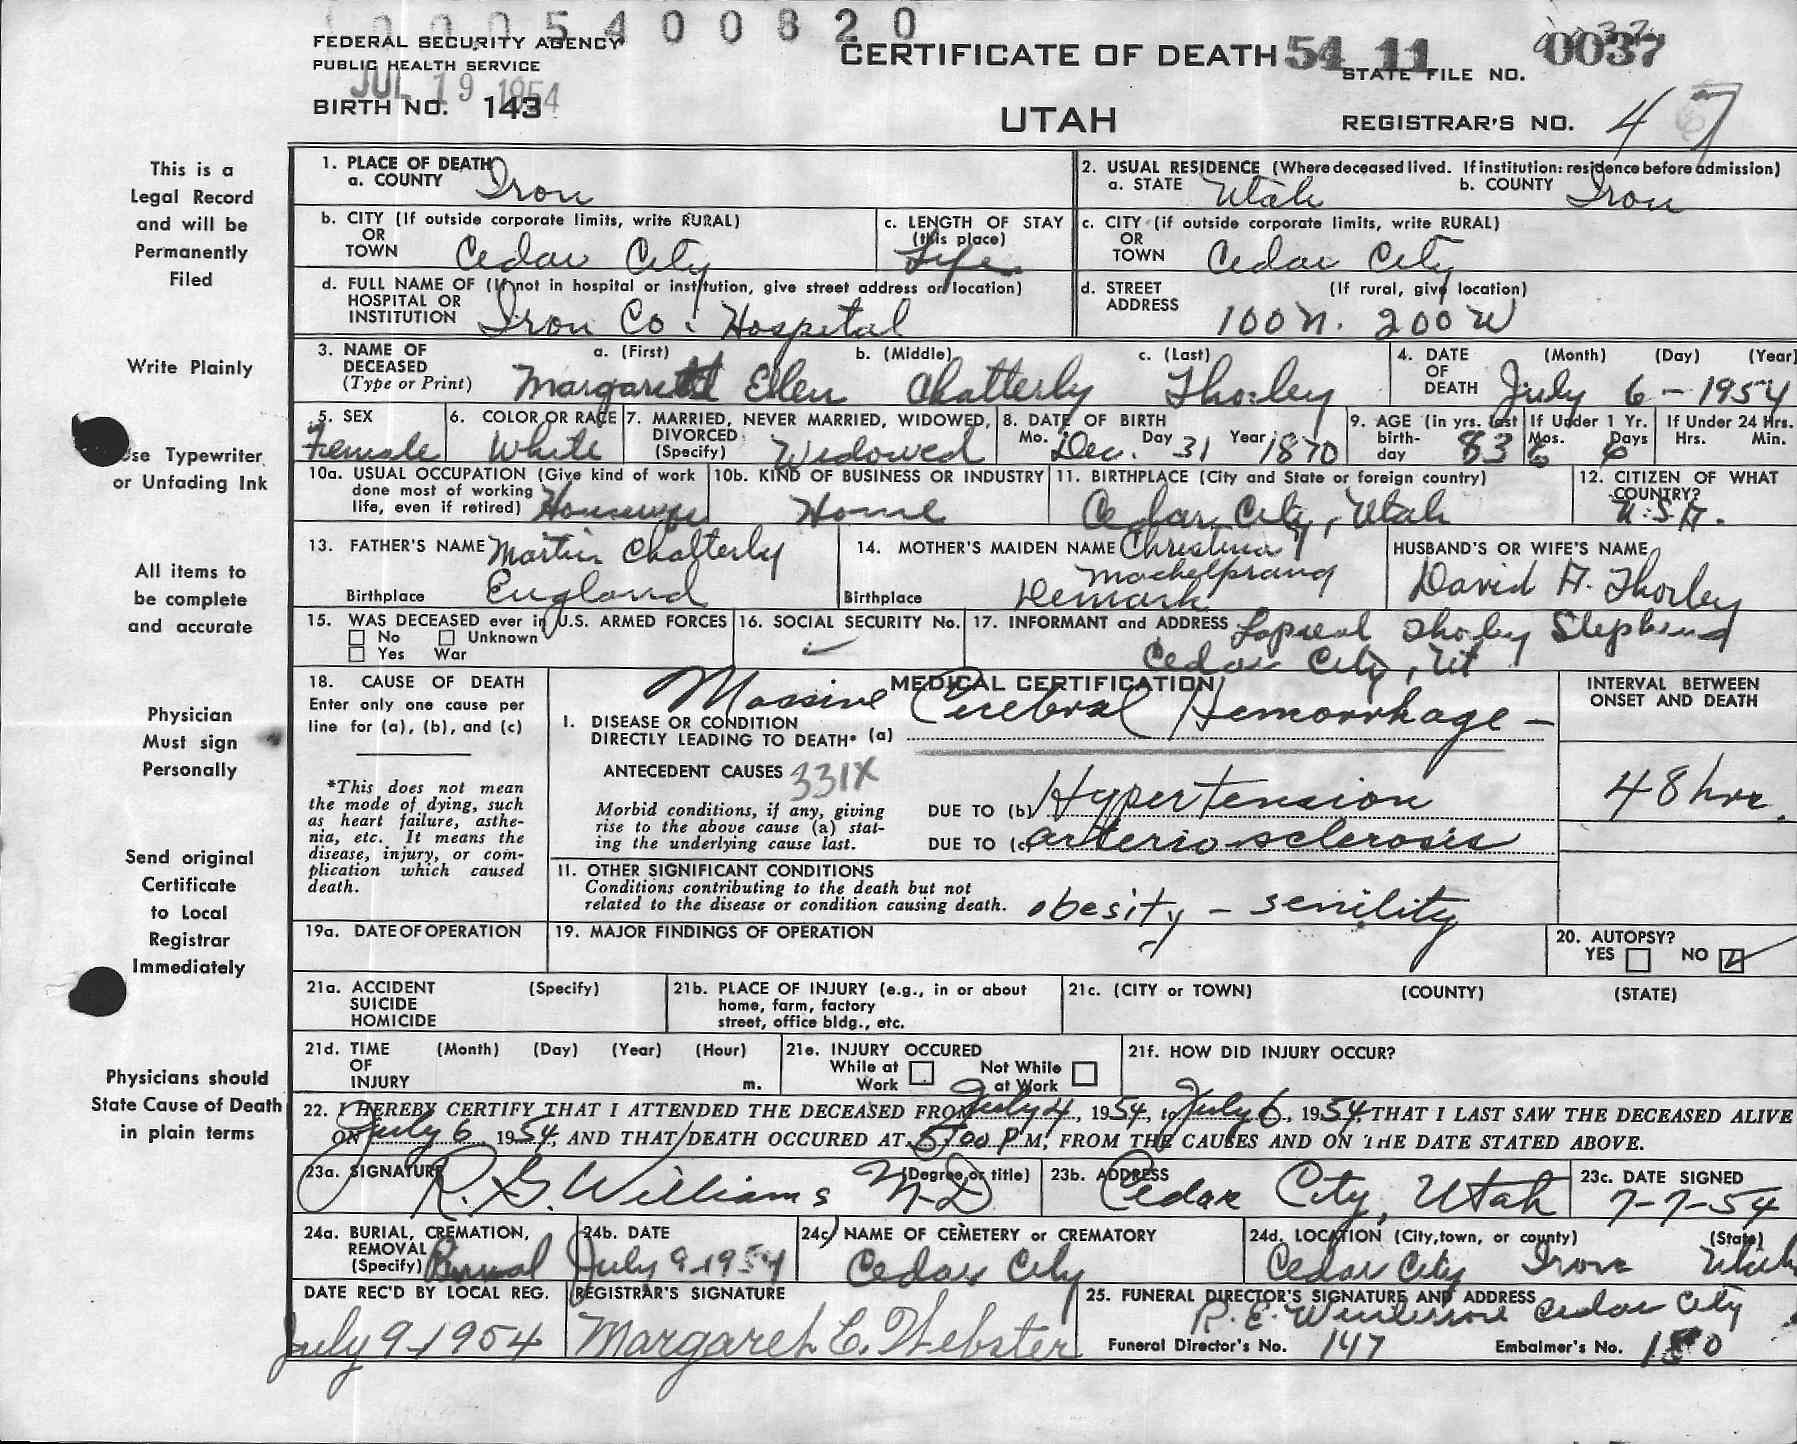 00054 00820
FEDERAL SECURITY AGENCY
PUBLIC HEALTH SERVICE
JUL 19 1954
BIRTH NO. 143
CERTIFICATE OF DEATH 54 11
STATE FILE NO. 0037
UTAH
REGISTRAR'S NO. 47
This is a
Legal Record
and will be
Permanently
Filed
Write Plainly
Use Typewriter
or Unfading Ink
All items to
be complete
and accurate
Physician
Must sign
Personally
Send original
Certificate
to Local
Registrar
Immediately
Physicians should
State Cause of Death
in plain terms
1. PLACE OF DEATH
a. COUNTY Iron
2. USUAL RESIDENCE (Where deceased lived. If institution: residence before admission)
a. STATE Utah b. COUNTY Iron
b. CITY (If outside corporate limits, write RURAL)
OR
TOWN Cedar City
c. LENGTH OF STAY
(this place)
Life
c. CITY (if outside corporate limits, write RURAL)
OR
TOWN Cedar City
d. FULL NAME OF (If not in hospital or institution, give street address or location)
HOSPITAL OR
INSTITUTION Iron Co. Hospital
d. STREET (If rural, give location)
ADDRESS 100 N. 200 W
3. NAME OF a. (First) b. (Middle) c. (Last)
DECEASED
(Type or Print) Margaret Ellen Chatterly Thorley
4. DATE (Month) (Day) (Year)
OF
DEATH July 6 - 1954
5. SEX
Female
6. COLOR OR RACE
White
7. MARRIED, NEVER MARRIED, WIDOWED,
DIVORCED
(Specify) Widowed
8. DATE OF BIRTH
Mo. Dec. Day 31 Year 1870
9. AGE (in yrs. last
birth-
day 83
If Under 1 Yr.
Mos. Days
6 6
If Under 24 Hrs.
Hrs. Min.
10a. USUAL OCCUPATION (Give kind of work
done most of working
life, even if retired) Housewife
10b. KIND OF BUSINESS OR INDUSTRY
Home
11. BIRTHPLACE (City and State or foreign country)
Cedar City, Utah
12. CITIZEN OF WHAT
COUNTRY?
U.S.A.
13. FATHER'S NAME Martin Chatterly
Birthplace England
14. MOTHER'S MAIDEN NAME Christina
Mackelprang
Birthplace Demark
HUSBAND'S OR WIFE'S NAME
David A. Thorley
15. WAS DECEASED ever in U.S. ARMED FORCES
No Unknown
Yes War
16. SOCIAL SECURITY No.
17. INFORMANT and ADDRESS Thorley Stephens
Cedar City, Ut
18. CAUSE OF DEATH
Enter only one cause per
line for (a), (b), and (c)
*This does not mean
the mode of dying, such
as heart failure, asthe-
nia, etc. It means the
disease, injury, or com-
plication which caused
death.
MEDICAL CERTIFICATION
I. DISEASE OR CONDITION
DIRECTLY LEADING TO DEATH* (a) Massive Cerebral Hemorrhage -
ANTECEDENT CAUSES 331X
Morbid conditions, if any, giving
rise to the above cause (a) stat-
ing the underlying cause last.
DUE TO (b) Hypertension
DUE TO (c) arteriosclerosis
INTERVAL BETWEEN
ONSET AND DEATH
48 hrs.
11. OTHER SIGNIFICANT CONDITIONS
Conditions contributing to the death but not
related to the disease or condition causing death. obesity - senility
19a. DATE OF OPERATION
19. MAJOR FINDINGS OF OPERATION
20. AUTOPSY?
YES NO
21a. ACCIDENT (Specify)
SUICIDE
HOMICIDE
21b. PLACE OF INJURY (e.g., in or about
home, farm, factory
street, office bldg., etc.
21c. (CITY or TOWN) (COUNTY) (STATE)
21d. TIME (Month) (Day) (Year) (Hour)
OF
INJURY m.
21e. INJURY OCCURED
While at Not While
Work at Work
21f. HOW DID INJURY OCCUR?
22. I HEREBY CERTIFY THAT I ATTENDED THE DECEASED FROM July 4, 1954, to July 6, 1954, THAT I LAST SAW THE DECEASED ALIVE
ON July 6 1954, AND THAT DEATH OCCURED AT 5:00 P.M, FROM THE CAUSES AND ON THE DATE STATED ABOVE.
23a. SIGNATURE (Degree or title)
R. G. Williams M.D.
23b. ADDRESS
Cedar City, Utah
23c. DATE SIGNED
7-7-54
24a. BURIAL, CREMATION,
REMOVAL
(Specify) Burial
24b. DATE
July 9-1954
24c. NAME OF CEMETERY OR CREMATORY
Cedar City
24d. LOCATION (City, town, or county) (State)
Cedar City Iron Utah
DATE REC'D BY LOCAL REG.
July 9-1954
REGISTRAR'S SIGNATURE
Margaret E. Webster
25. FUNERAL DIRECTOR'S SIGNATURE AND ADDRESS
R. E. Cedar City
Funeral Director's No. 147 Embalmer's No.